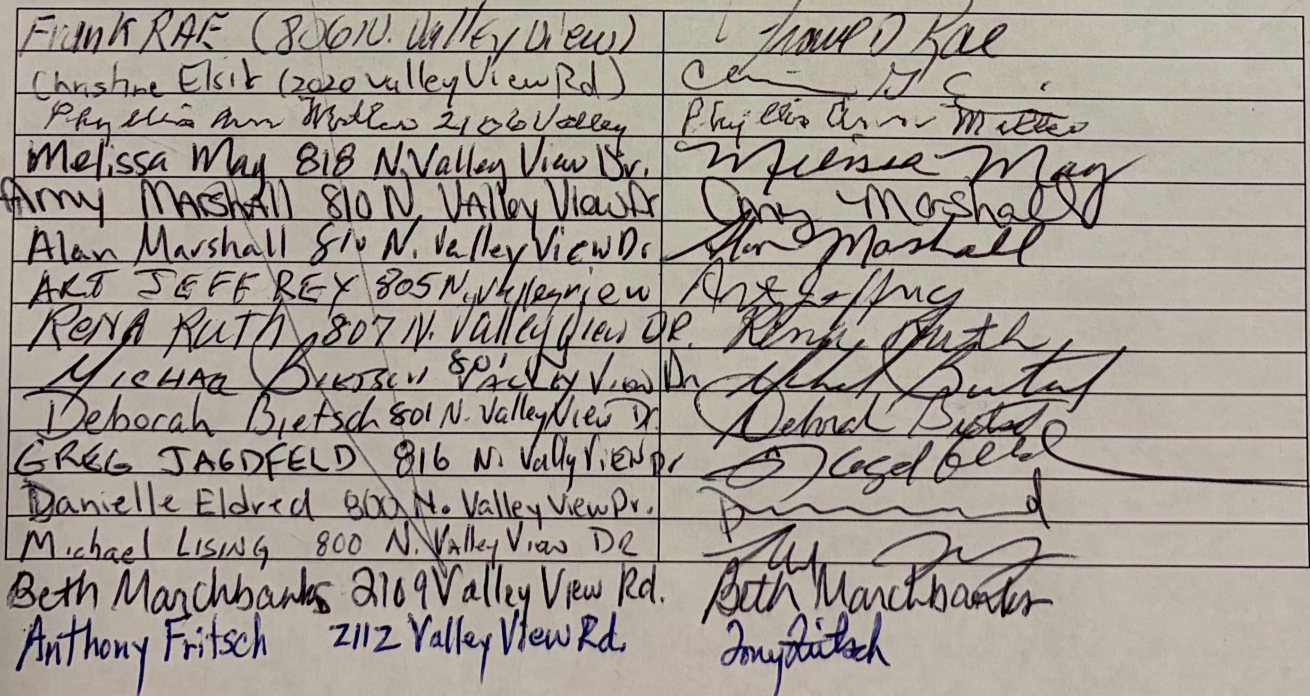 Frank RAE (806 N. Valley View) Frank D Rae
Christine Elsik (2020 Valley View Rd)
Phyllis Ann 2106 Valley Phyllis Ann
Melissa May 818 N. Valley View Dr. Melissa May
Amy MARSHALL 810 N. VALLey View Dr Amy Marshall
Alan Marshall 810 N. Valley View Dr Alan Marshall
ART JEFFREY 805 N. Valleyview Art Jeffrey
RENA RUTH 807 N. Valley View DR. Rena Ruth
MICHAEL BIETSCH 801 N VALLEY VIEW Dr Michael Bietsch
Deborah Bietsch 801 N. Valley View Dr. Deborah Bietsch
GREG JAGDFELD 816 N. Vally VIEW Dr G Jagdfeld
Danielle Eldred 800 N. Valley View Dr.
Michael LISING 800 N. VAlley View DR
Beth Marchbanks 2109 Valley View Rd. Beth Marchbanks
Anthony Fritsch 2112 Valley View Rd. Tony Fritsch